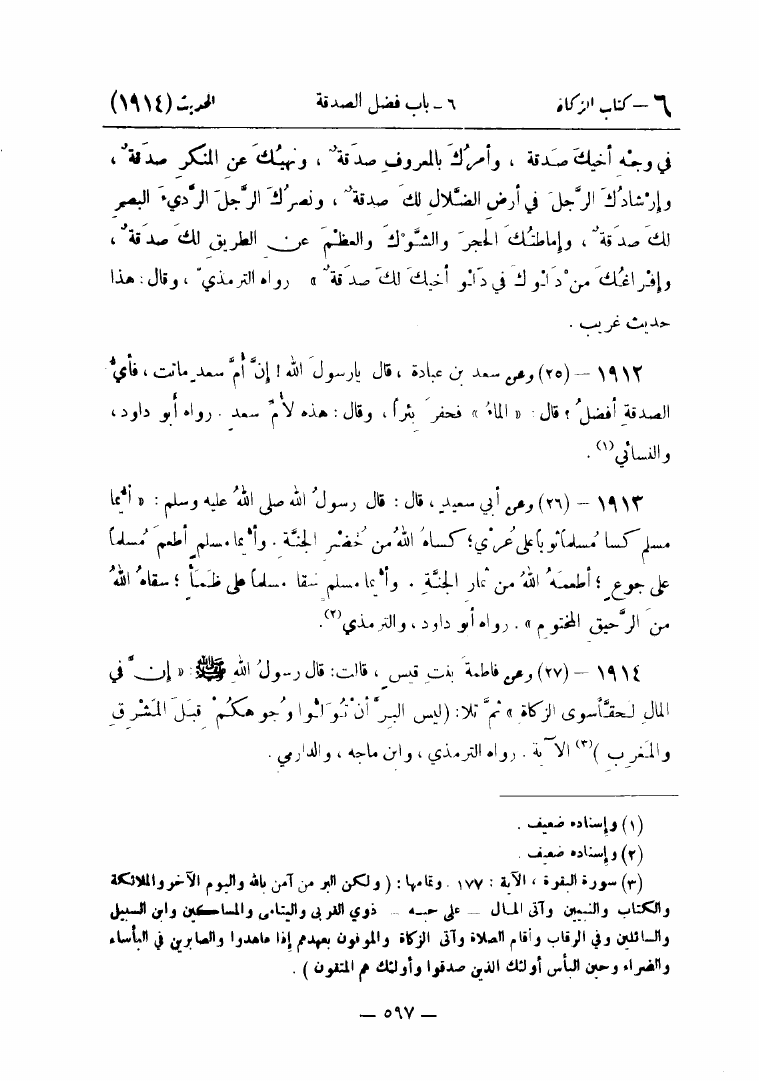 ٦ – كتاب الزكاة ٦ - باب فضل الصدقة الحديث (١٩١٤)
في وجْهِ أخيكَ صَدقة ، وأمرُكَ بالمعروفِ صدَقةٌ ، ونهيُكَ عنِ المنكرِ صدَقةٌ ،
وإرْشادُكَ الرَّجلَ في أرضِ الضَّلالِ لكَ صدقةٌ ، ونصرُكَ الرَّجلَ الرَّديءَ البصرِ
لكَ صدَقةٌ ، وإماطتُكَ الحجرَ والشَّوْكَ والعظْمَ عن الطريقِ لكَ صدَقةٌ ،
وإفراغُكَ منْ دَلْوِكَ في دَلْوِ أخيكَ لكَ صدَقةٌ » رواه الترمذيُّ ، وقال : هذا
حديث غريب .
١٩١٢ – (٢٥) وعن سعد بن عبادة ، قال يارسولَ اللهِ ! إنَّ أُمَّ سعدٍ ماتت ، فأيُّ
الصدقةِ أفضلُ ؟ قال : « الماءُ » فحفرَ بئراً ، وقال : هذه لأمِّ سعدٍ . رواه أبو داود ،
والنسائي(١) .
١٩١٣ – (٢٦) وعن أبي سعيدٍ ، قال : قال رسولُ اللهِ صلى اللهُ عليه وسلم : « أيُّما
مسلمٍ كسا مُسلماً ثوباً على عُرْيٍ ؛ كساهُ اللهُ من خُضْرِ الجنَّةِ . وأيُّما مسلمٍ أطعمَ مُسلماً
على جوعٍ ؛ أطعمَهُ اللهُ من ثمارِ الجنَّةِ . وأيُّما مسلمٍ سَقا مسلماً على ظمَأٍ ؛ سقاهُ اللهُ
منَ الرَّحيقِ المختومِ » . رواه أبو داود ، والترمذي(٢).
١٩١٤ – (٢٧) وعن فاطمةَ بنتِ قيسٍ ، قالت : قال رسولُ اللهِ ﷺ : « إنَّ في
المالِ لَحقّاً سوى الزكاةِ » ثمَّ تلا : (ليس البِرَّ أنْ تُوَلُّوا وُجوهَكُمْ قِبَلَ المَشْرِقِ
والمَغرِبِ )(٣) الآيةَ . رواه الترمذي ، وابن ماجه ، والدارمي .
(١) وإسناده ضعيف .
(٢) وإسناده ضعيف .
(٣) سورة البقرة ، الآية : ١٧٧ . وتمامها : ( ولكن البر من آمن بالله واليوم الآخر والملائكة
والكتاب والنبيين وآتى المال – على حبه – ذوي القربى واليتامى والمساكين وابن السبيل
والسائلين وفي الرقاب وأقام الصلاة وآتى الزكاة والموفون بعهدهم إذا عاهدوا والصابرين في البأساء
والضراء وحين البأس أولئك الذين صدقوا وأولئك هم المتقون ) .
– ٥٩٧ –